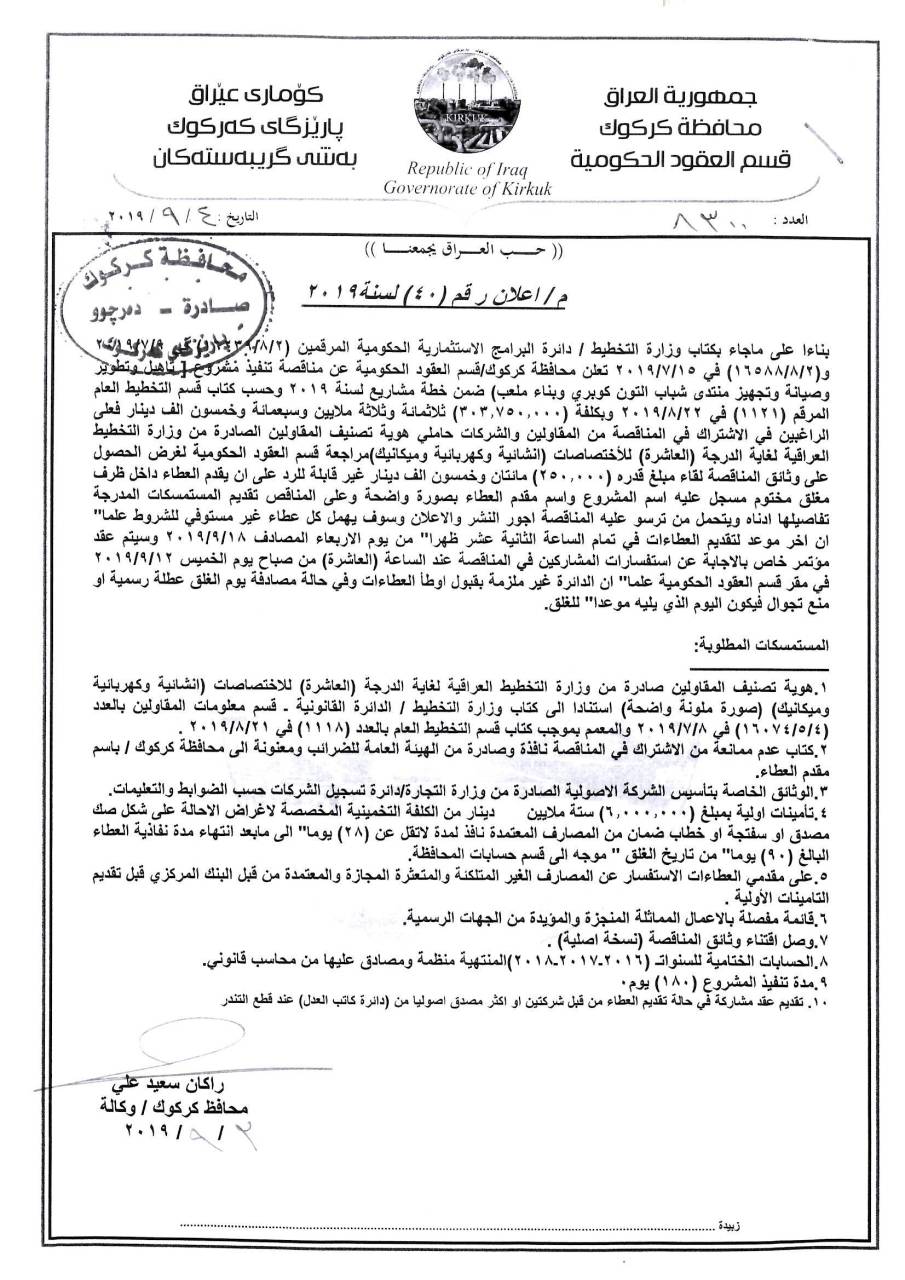 جمهورية العراق
محافظة كركوك
قسم العقود الحكومية
كۆماری عێراق
پارێزگای کەرکوک
بەشی گرێبەستەکان
KIRKUK
Republic of Iraq
Governorate of Kirkuk
العدد : ٨٣٠٠
التاريخ : ٤ / ٩ / ٢٠١٩
(( حـب العـراق يجمعنـا ))
محافظة كركوك
صـادرة - دەرچوو
م/ اعلان رقم (٤٠) لسنة ٢٠١٩
بناءا على ماجاء بكتاب وزارة التخطيط / دائرة البرامج الاستثمارية الحكومية المرقمين
و(١٦٥٨٨/٨/٢) في ٢٠١٩/٧/١٥ تعلن محافظة كركوك/قسم العقود الحكومية عن مناقصة تنفيذ مشروع (تأهيل وتطوير
وصيانة وتجهيز منتدى شباب التون كوبري وبناء ملعب) ضمن خطة مشاريع لسنة ٢٠١٩ وحسب كتاب قسم التخطيط العام
المرقم (١١٢١) في ٢٠١٩/٨/٢٢ وبكلفة (٣٠٣,٧٥٠,٠٠٠) ثلاثمائة وثلاثة ملايين وسبعمائة وخمسون الف دينار فعلى
الراغبين في الاشتراك في المناقصة من المقاولين والشركات حاملي هوية تصنيف المقاولين الصادرة من وزارة التخطيط
العراقية لغاية الدرجة (العاشرة) للأختصاصات (انشائية وكهربائية وميكانيك)مراجعة قسم العقود الحكومية لغرض الحصول
على وثائق المناقصة لقاء مبلغ قدره (٢٥٠,٠٠٠) مائتان وخمسون الف دينار غير قابلة للرد على ان يقدم العطاء داخل ظرف
مغلق مختوم مسجل عليه اسم المشروع واسم مقدم العطاء بصورة واضحة وعلى المناقص تقديم المستمسكات المدرجة
تفاصيلها ادناه ويتحمل من ترسو عليه المناقصة اجور النشر والاعلان وسوف يهمل كل عطاء غير مستوفي للشروط علما"
ان اخر موعد لتقديم العطاءات في تمام الساعة الثانية عشر ظهرا" من يوم الاربعاء المصادف ٢٠١٩/٩/١٨ وسيتم عقد
مؤتمر خاص بالاجابة عن استفسارات المشاركين في المناقصة عند الساعة (العاشرة) من صباح يوم الخميس ٢٠١٩/٩/١٢
في مقر قسم العقود الحكومية علما" ان الدائرة غير ملزمة بقبول اوطأ العطاءات وفي حالة مصادفة يوم الغلق عطلة رسمية او
منع تجوال فيكون اليوم الذي يليه موعدا" للغلق.
المستمسكات المطلوبة:
١.هوية تصنيف المقاولين صادرة من وزارة التخطيط العراقية لغاية الدرجة (العاشرة) للاختصاصات (انشائية وكهربائية
وميكانيك) (صورة ملونة واضحة) استنادا الى كتاب وزارة التخطيط / الدائرة القانونية - قسم معلومات المقاولين بالعدد
(١٦٠٧٤/٥/٤) في ٢٠١٩/٧/٨ والمعمم بموجب كتاب قسم التخطيط العام بالعدد (١١١٨) في ٢٠١٩/٨/٢١ .
٢.كتاب عدم ممانعة من الاشتراك في المناقصة نافذة وصادرة من الهيئة العامة للضرائب ومعنونة الى محافظة كركوك / باسم
مقدم العطاء.
٣.الوثائق الخاصة بتأسيس الشركة الاصولية الصادرة من وزارة التجارة/دائرة تسجيل الشركات حسب الضوابط والتعليمات.
٤.تأمينات اولية بمبلغ (٦,٠٠٠,٠٠٠) ستة ملايين دينار من الكلفة التخمينية المخصصة لاغراض الاحالة على شكل صك
مصدق او سفتجة او خطاب ضمان من المصارف المعتمدة نافذ لمدة لاتقل عن (٢٨) يوما" الى مابعد انتهاء مدة نفاذية العطاء
البالغ (٩٠) يوما" من تاريخ الغلق " موجه الى قسم حسابات المحافظة.
٥.على مقدمي العطاءات الاستفسار عن المصارف الغير المتلكئة والمتعثرة المجازة والمعتمدة من قبل البنك المركزي قبل تقديم
التامينات الأولية .
٦.قائمة مفصلة بالاعمال المماثلة المنجزة والمؤيدة من الجهات الرسمية.
٧.وصل اقتناء وثائق المناقصة (نسخة اصلية) .
٨.الحسابات الختامية للسنوات (٢٠١٦-٢٠١٧-٢٠١٨)المنتهية منظمة ومصادق عليها من محاسب قانوني.
٩.مدة تنفيذ المشروع (١٨٠) يوم.
١٠. تقديم عقد مشاركة في حالة تقديم العطاء من قبل شركتين او اكثر مصدق اصوليا من (دائرة كاتب العدل) عند قطع التندر
راكان سعيد علي
محافظ كركوك / وكالة
٣ / ٩ / ٢٠١٩
زبيدة